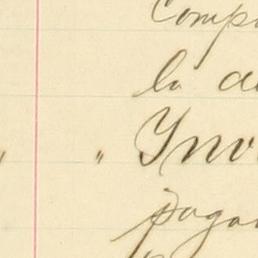 Comp
la a
" Inv
paga